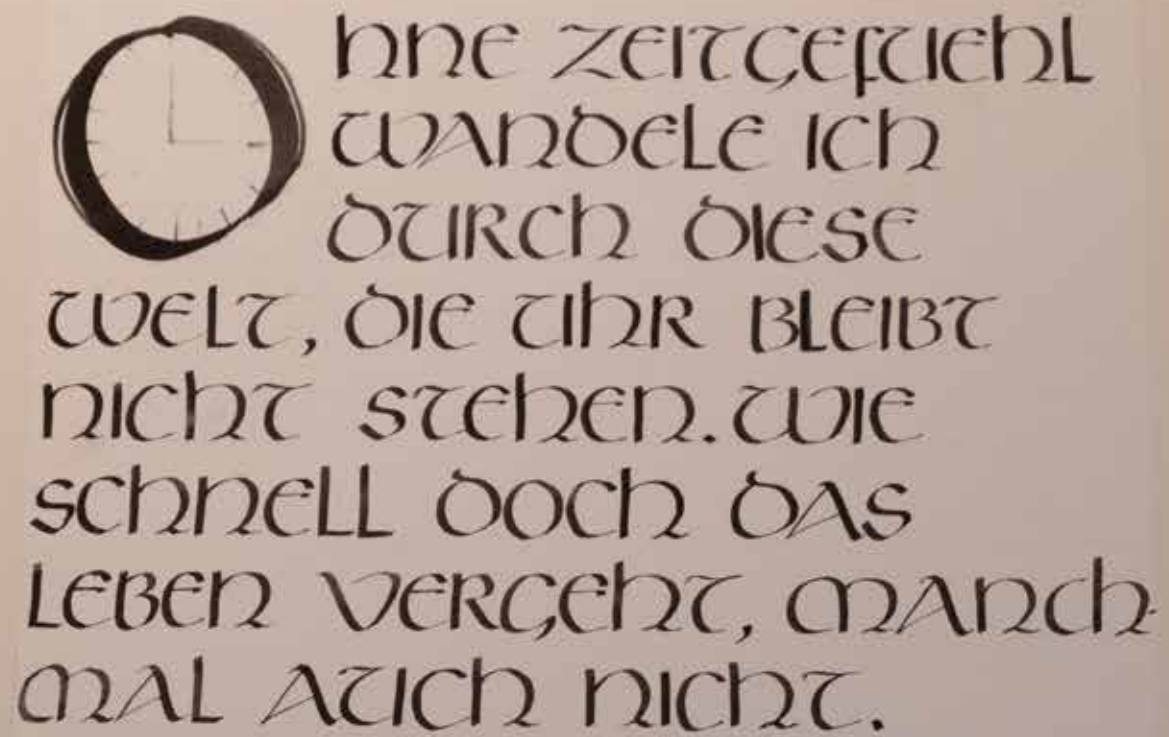 OHNE ZEITGEFUEHL
WANDELE ICH
DURCH DIESE
WELT, DIE UHR BLEIBT
NICHT STEHEN. WIE
SCHNELL DOCH DAS
LEBEN VERGEHT, MANCH-
MAL AUCH NICHT.